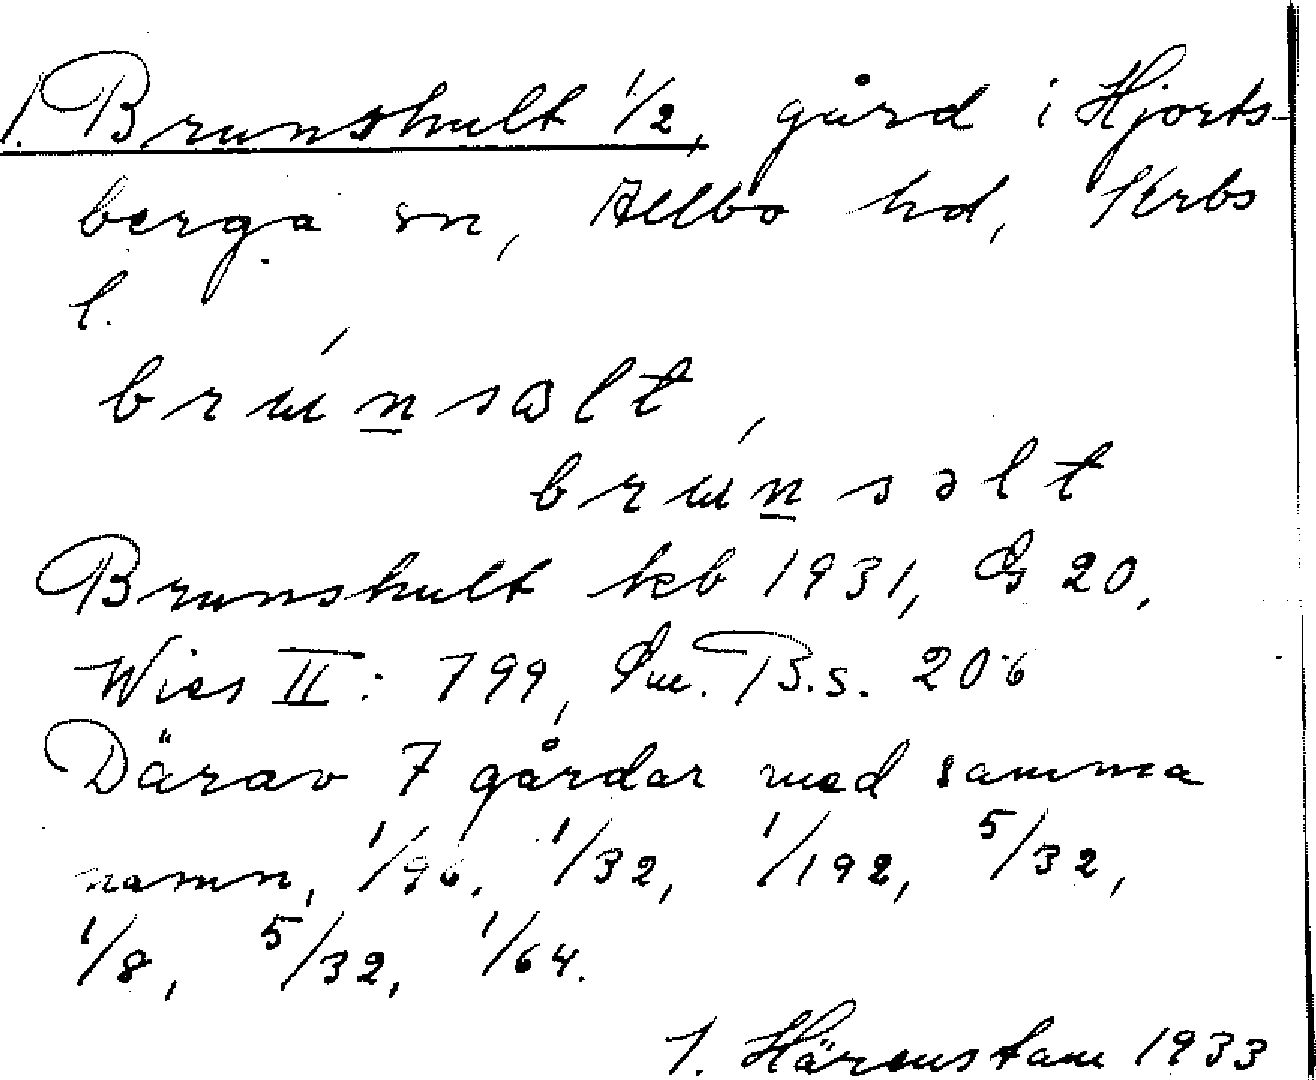 1. Brunshult 1/2, gård i Hjorts-
berga sn, Allbo hd, Krbs
l.
brɯ́n̲salt,
brɯ́n̲səlt
Brunshult kb 1931, G 20,
Wies II: 799, Sm. B. s. 206
Därav 7 gårdar med samma
namn, 1/96, 1/32, 1/192, 5/32,
1/8, 5/32, 1/64.
I. Härenstam 1933